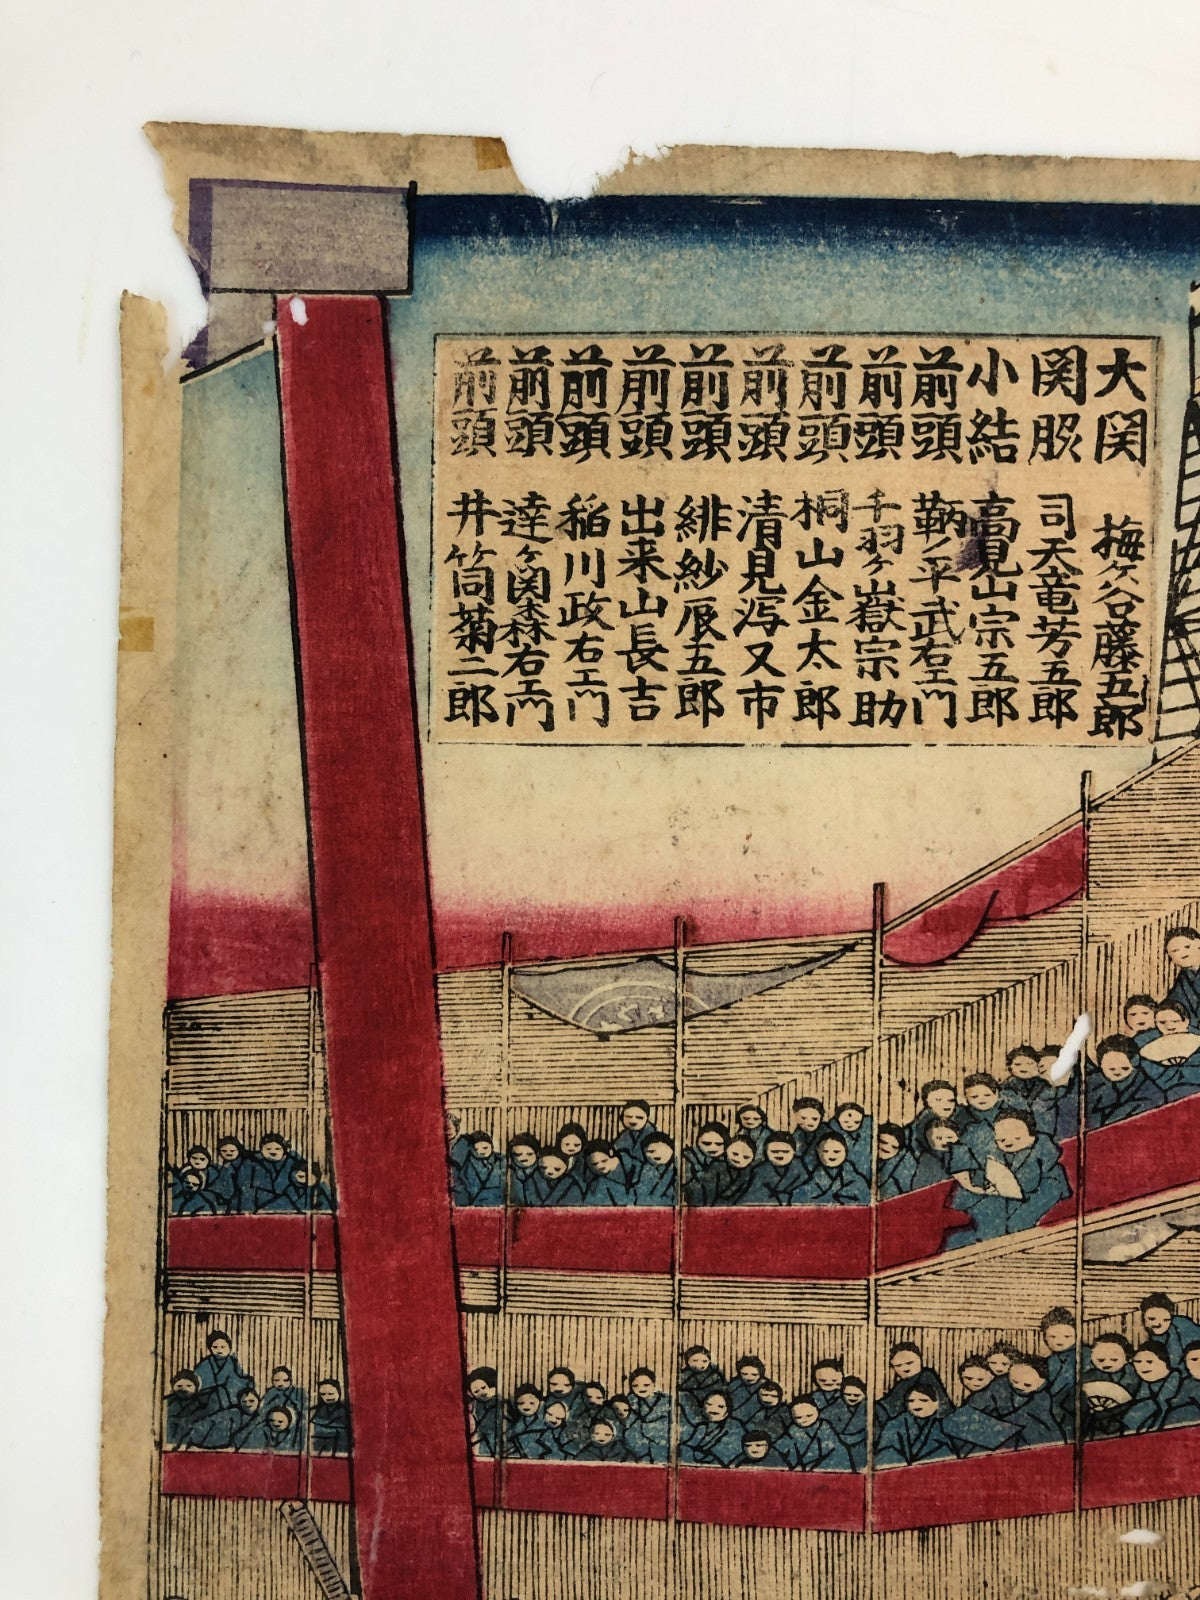 大関 梅ヶ谷藤五郎
関脇 司天竜芳五郎
小結 高見山宗五郎
前頭 鞆ノ平武右エ門
前頭 千羽ヶ嶽宗助
前頭 桐山金太郎
前頭 清見潟又市
前頭 緋紗辰五郎
前頭 出来山長吉
前頭 稲川政右エ門
前頭 達ヶ関森右エ門
前頭 井筒菊二郎